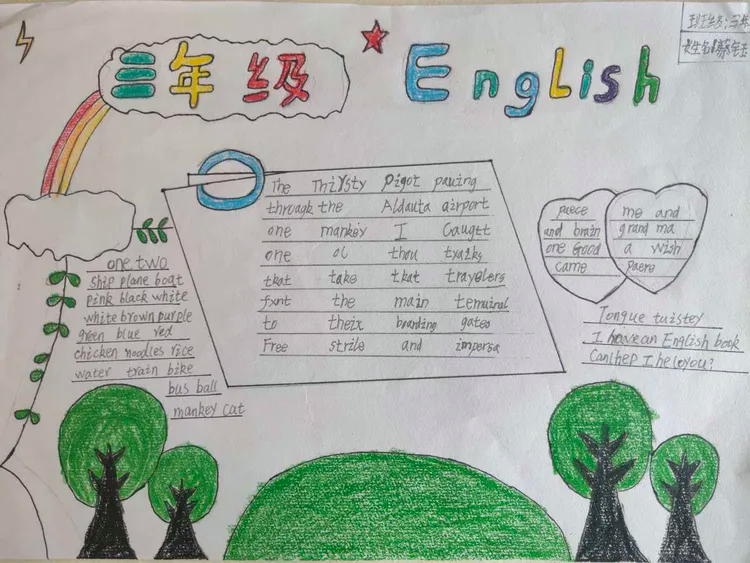 三年级 English
班级:三年
The Thirsty Pigot pauing
through the Aldauta airport
one mankey I Caught
one ol thou txaiks
tkat take tkat travelers
fxnt the main temuinal
to theix boarding gates
Free strile and impersa
one two
ship plane boat
pink black white
white brown purple
green blue red
chicken noodles rice
water train bike
bus ball
mankey cat
paece
and brain
one Good
came
me and
grand ma
a wish
paere
Tongue tuistey
I have an English book
Can I help you?